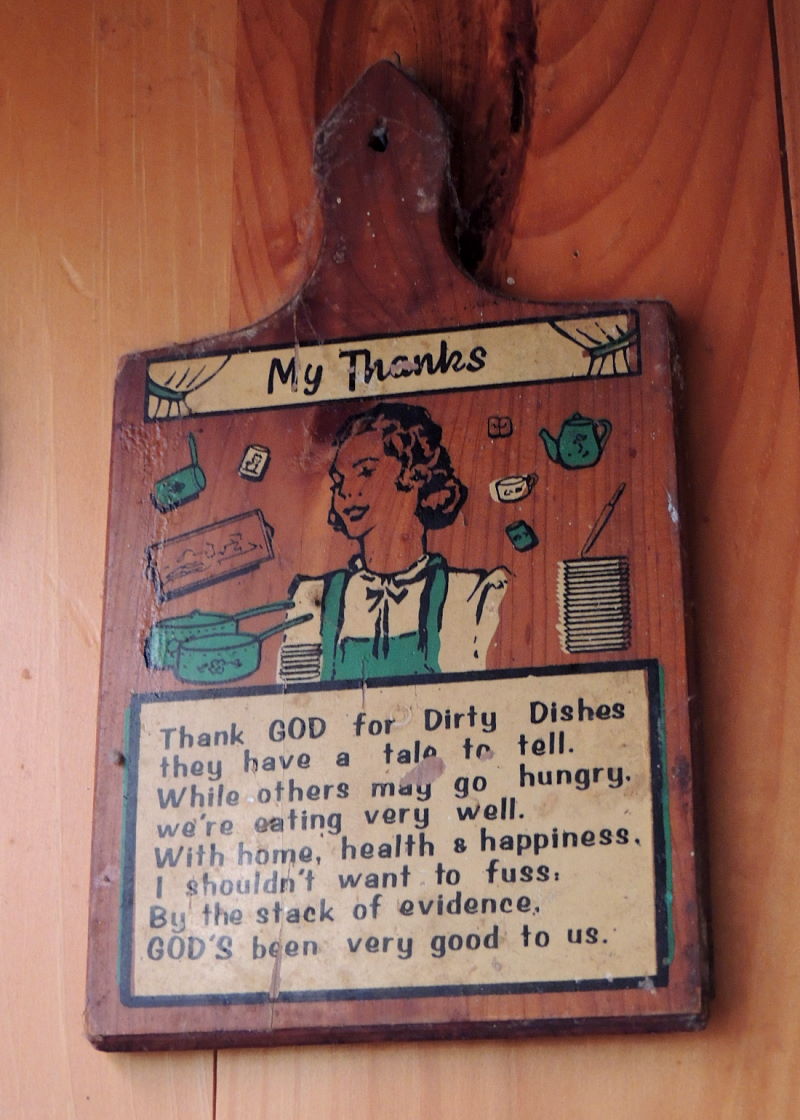 My Thanks
Thank GOD for Dirty Dishes
they have a tale to tell.
While others may go hungry,
we're eating very well.
With home, health & happiness,
I shouldn't want to fuss:
By the stack of evidence,
GOD'S been very good to us.